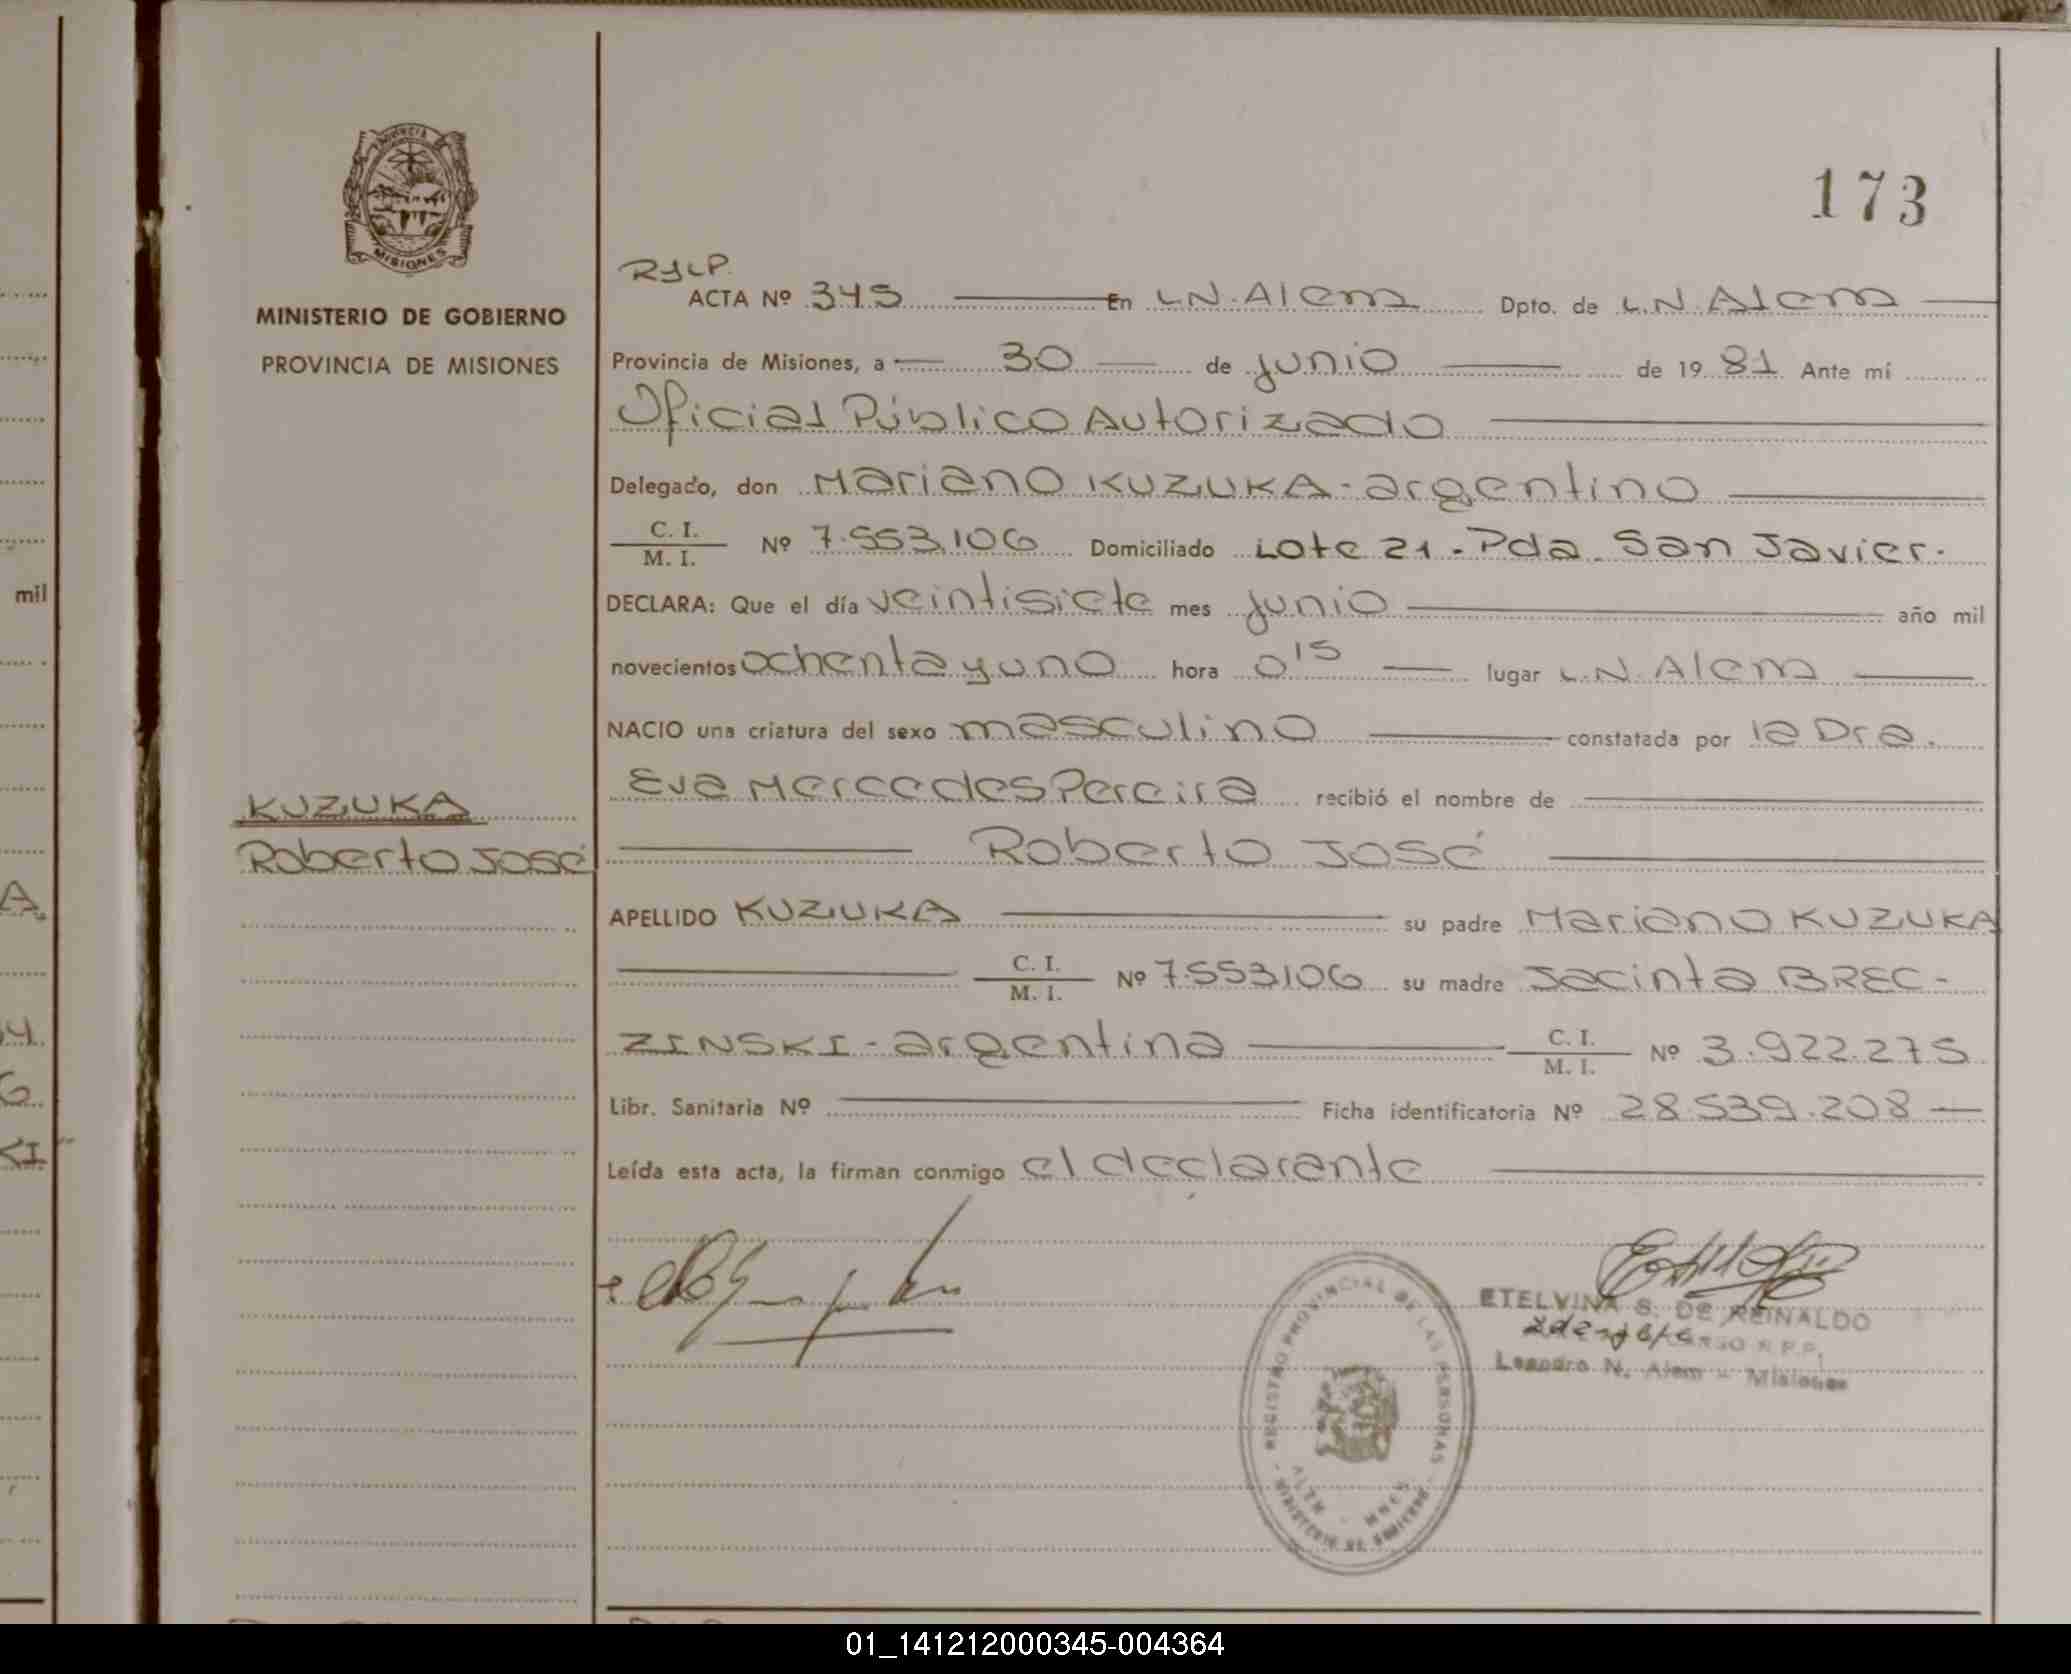 173
PROVINCIA
MISIONES
MINISTERIO DE GOBIERNO
PROVINCIA DE MISIONES
mil
KUZUKA
Roberto José
RJLP.
ACTA Nº 345 En L.N. Alem Dpto. de L.N. Alem
Provincia de Misiones, a 30 de junio de 19 81 Ante mí
Oficial Público Autorizado
Delegado, don Mariano KUZUKA - argentino
C. I. / M. I. Nº 7.553.106 Domiciliado Lote 21 - Pda. San Javier.
DECLARA: Que el día veintisiete mes junio año mil
novecientos ochenta y uno hora 0 15 lugar L.N. Alem
NACIO una criatura del sexo masculino constatada por la Dra.
Eva Mercedes Pereira recibió el nombre de
Roberto José
APELLIDO KUZUKA su padre Mariano KUZUKA
C. I. / M. I. Nº 7.553.106 su madre Jacinta BREC-
ZINSKI - argentina C. I. / M. I. Nº 3.922.275
Libr. Sanitaria Nº Ficha identificatoria Nº 28.539.208
Leída esta acta, la firman conmigo el declarante
ETELVINA S. DE REINALDO
R.P.P.
Leandro N. Alem - Misiones
REGISTRO PROVINCIAL DE LAS PERSONAS
MINISTERIO DE GOBIERNO
01_141212000345-004364